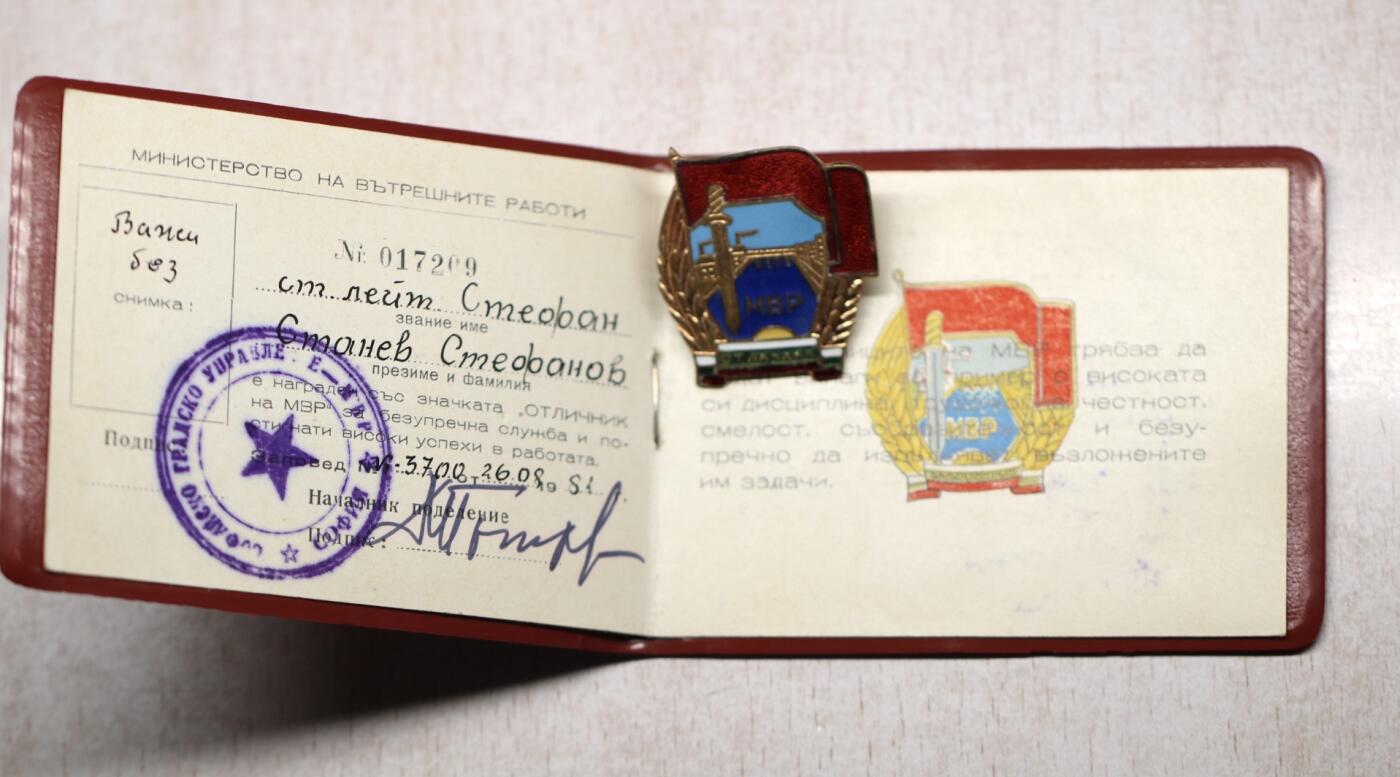 МИНИСТЕРСТВО НА ВЪТРЕШНИТЕ РАБОТИ
Важи
без
снимка:
№ 017209
ст. лейт. Стефан
звание име
Станев Стефанов
презиме и фамилия
е награден със значката „ОТЛИЧНИК
на МВР“ за безупречна служба и по-
стигнати високи успехи в работата.
Заповед № К-3700 от 26.08 19 81 г.
Началник поделение
Подпис:
ГРАДСКО УПРАВЛЕ Е – МВР СОФИЯ
МВР
ОТЛИЧНИК
на МВР трябва да
високата
си дисциплина, честност,
смелост, и безу-
пречно да възложените
им задачи.
МВР